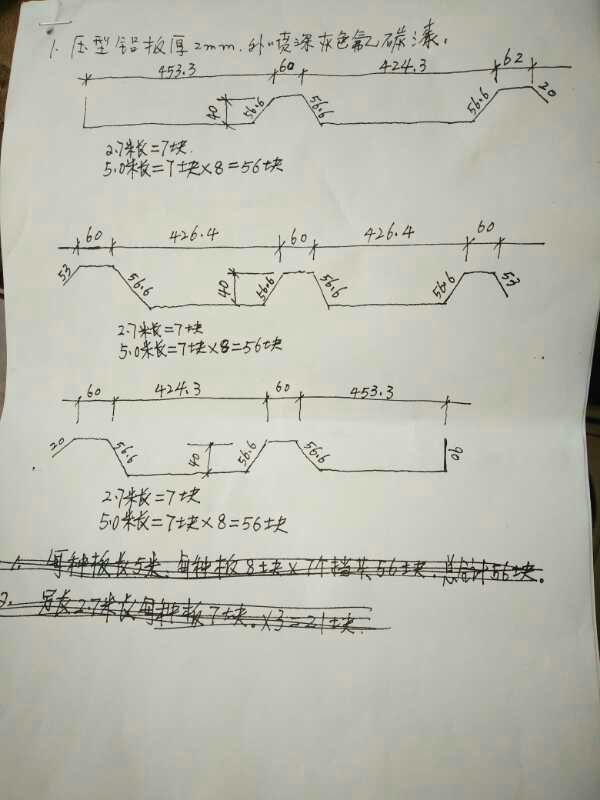 1. 压型铝板厚2mm.外喷深灰色氟碳漆.
453.3 60 424.3 62
40 56.6 56.6 56.6 20
2.7米长=7块.
5.0米长=7块×8=56块
60 426.4 60 426.4 60
53 56.6 40 56.6 56.6 56.6 53
2.7米长=7块
5.0米长=7块×8=56块
60 424.3 60 453.3
20 56.6 40 56.6 56.6 90
2.7米长=7块
5.0米长=7块×8=56块
1. 每种板长5米.每种板8块×7个挡共56块.总合计56块.
2. 另长2.7米长每种板7块.×3=21块.